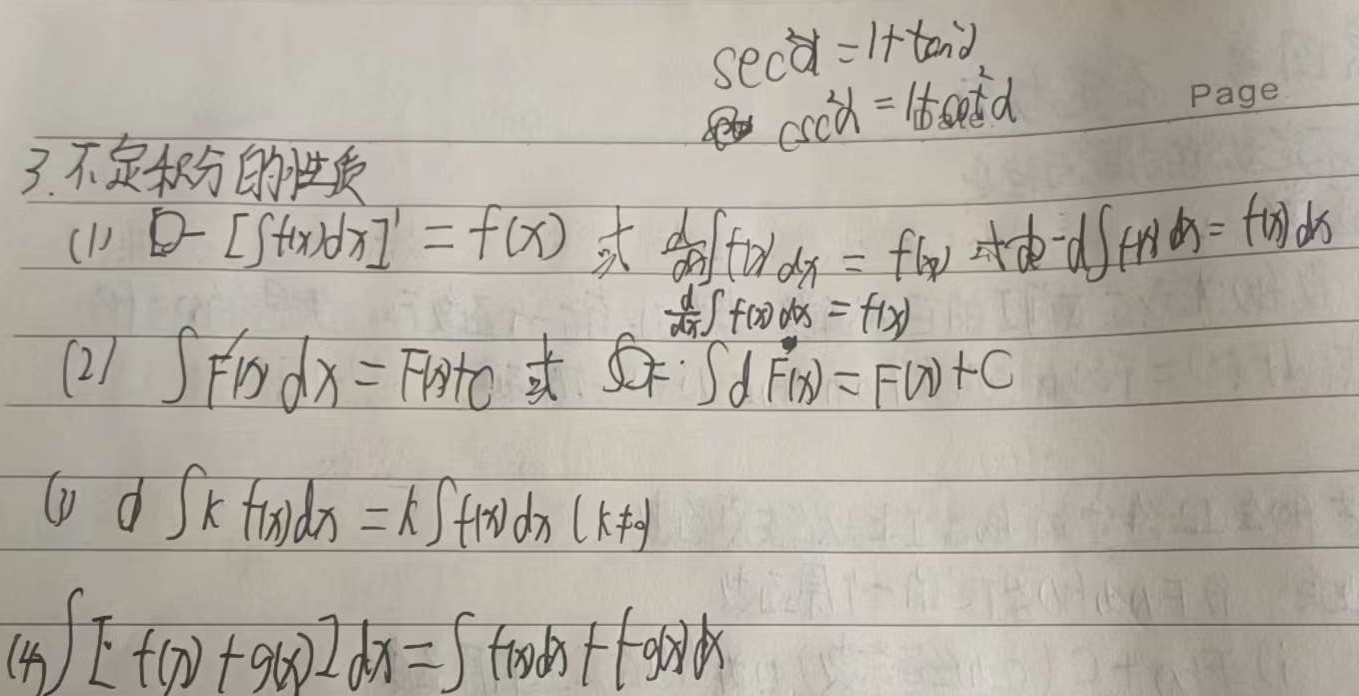 sec²α = 1 + tan²α
csc²α = 1 + cot²α
Page
3. 不定积分的性质
(1) [∫f(x)dx]' = f(x) 或 d/dx ∫f(x)dx = f(x) 或 d∫f(x)dx = f(x)dx
d/dx ∫f(x)dx = f(x)
(2) ∫F'(x)dx = F(x)+C 或 ∫dF(x) = F(x)+C
(3) d ∫k f(x)dx = k∫f(x)dx (k≠0)
(4) ∫[f(x)+g(x)]dx = ∫f(x)dx + ∫g(x)dx